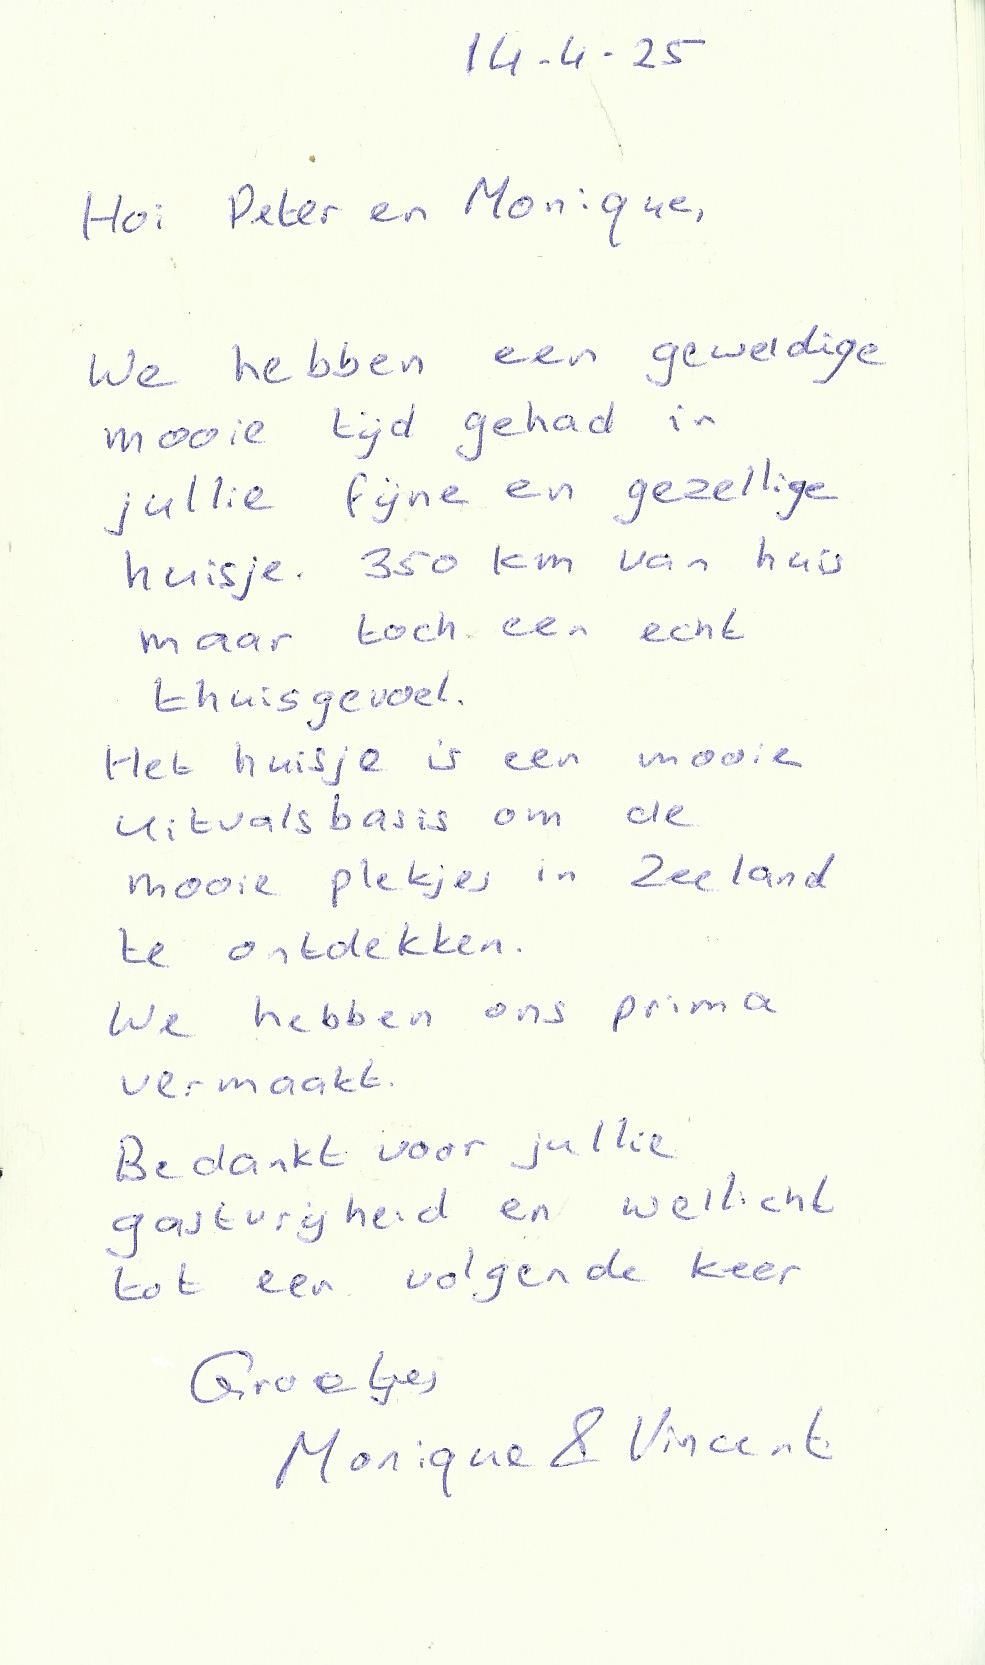 14-4-25
Hoi Peter en Monique,
We hebben een geweldige
mooie tijd gehad in
jullie fijne en gezellige
huisje. 350 km van huis
maar toch een echt
thuisgevoel.
Het huisje is een mooie
uitvalsbasis om de
mooie plekjes in Zeeland
te ontdekken.
We hebben ons prima
vermaakt.
Bedankt voor jullie
gastvrijheid en wellicht
tot een volgende keer
Groetjes
Monique & Vincent